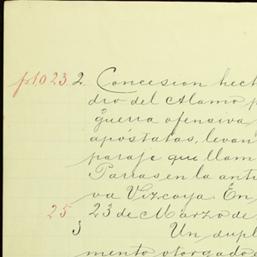 fs 1023. 2. Concesion hech
dro del Alamo p
guerra ofensiva
apóstatas, levan
paraje que llam
Parras en la anti
va Vizcaya. En
25 23 de Marzo de
3 Un dupl
mento otorgado